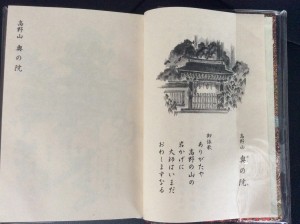 高野山 奥の院
御詠歌
ありがたや
高野の山の
岩かげに
大師はいまだ
おわしますなる
高野山 奥の院